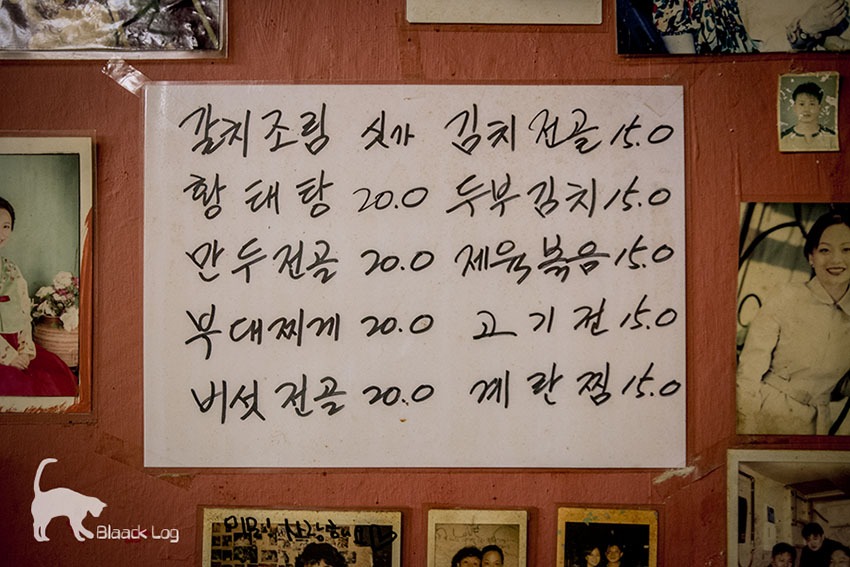 갈치조림 싯가 김치전골 15.0
황태탕 20.0 두부김치 15.0
만두전골 20.0 제육볶음 15.0
부대찌게 20.0 고기전 15.0
버섯전골 20.0 계란찜 15.0
Blaack Log